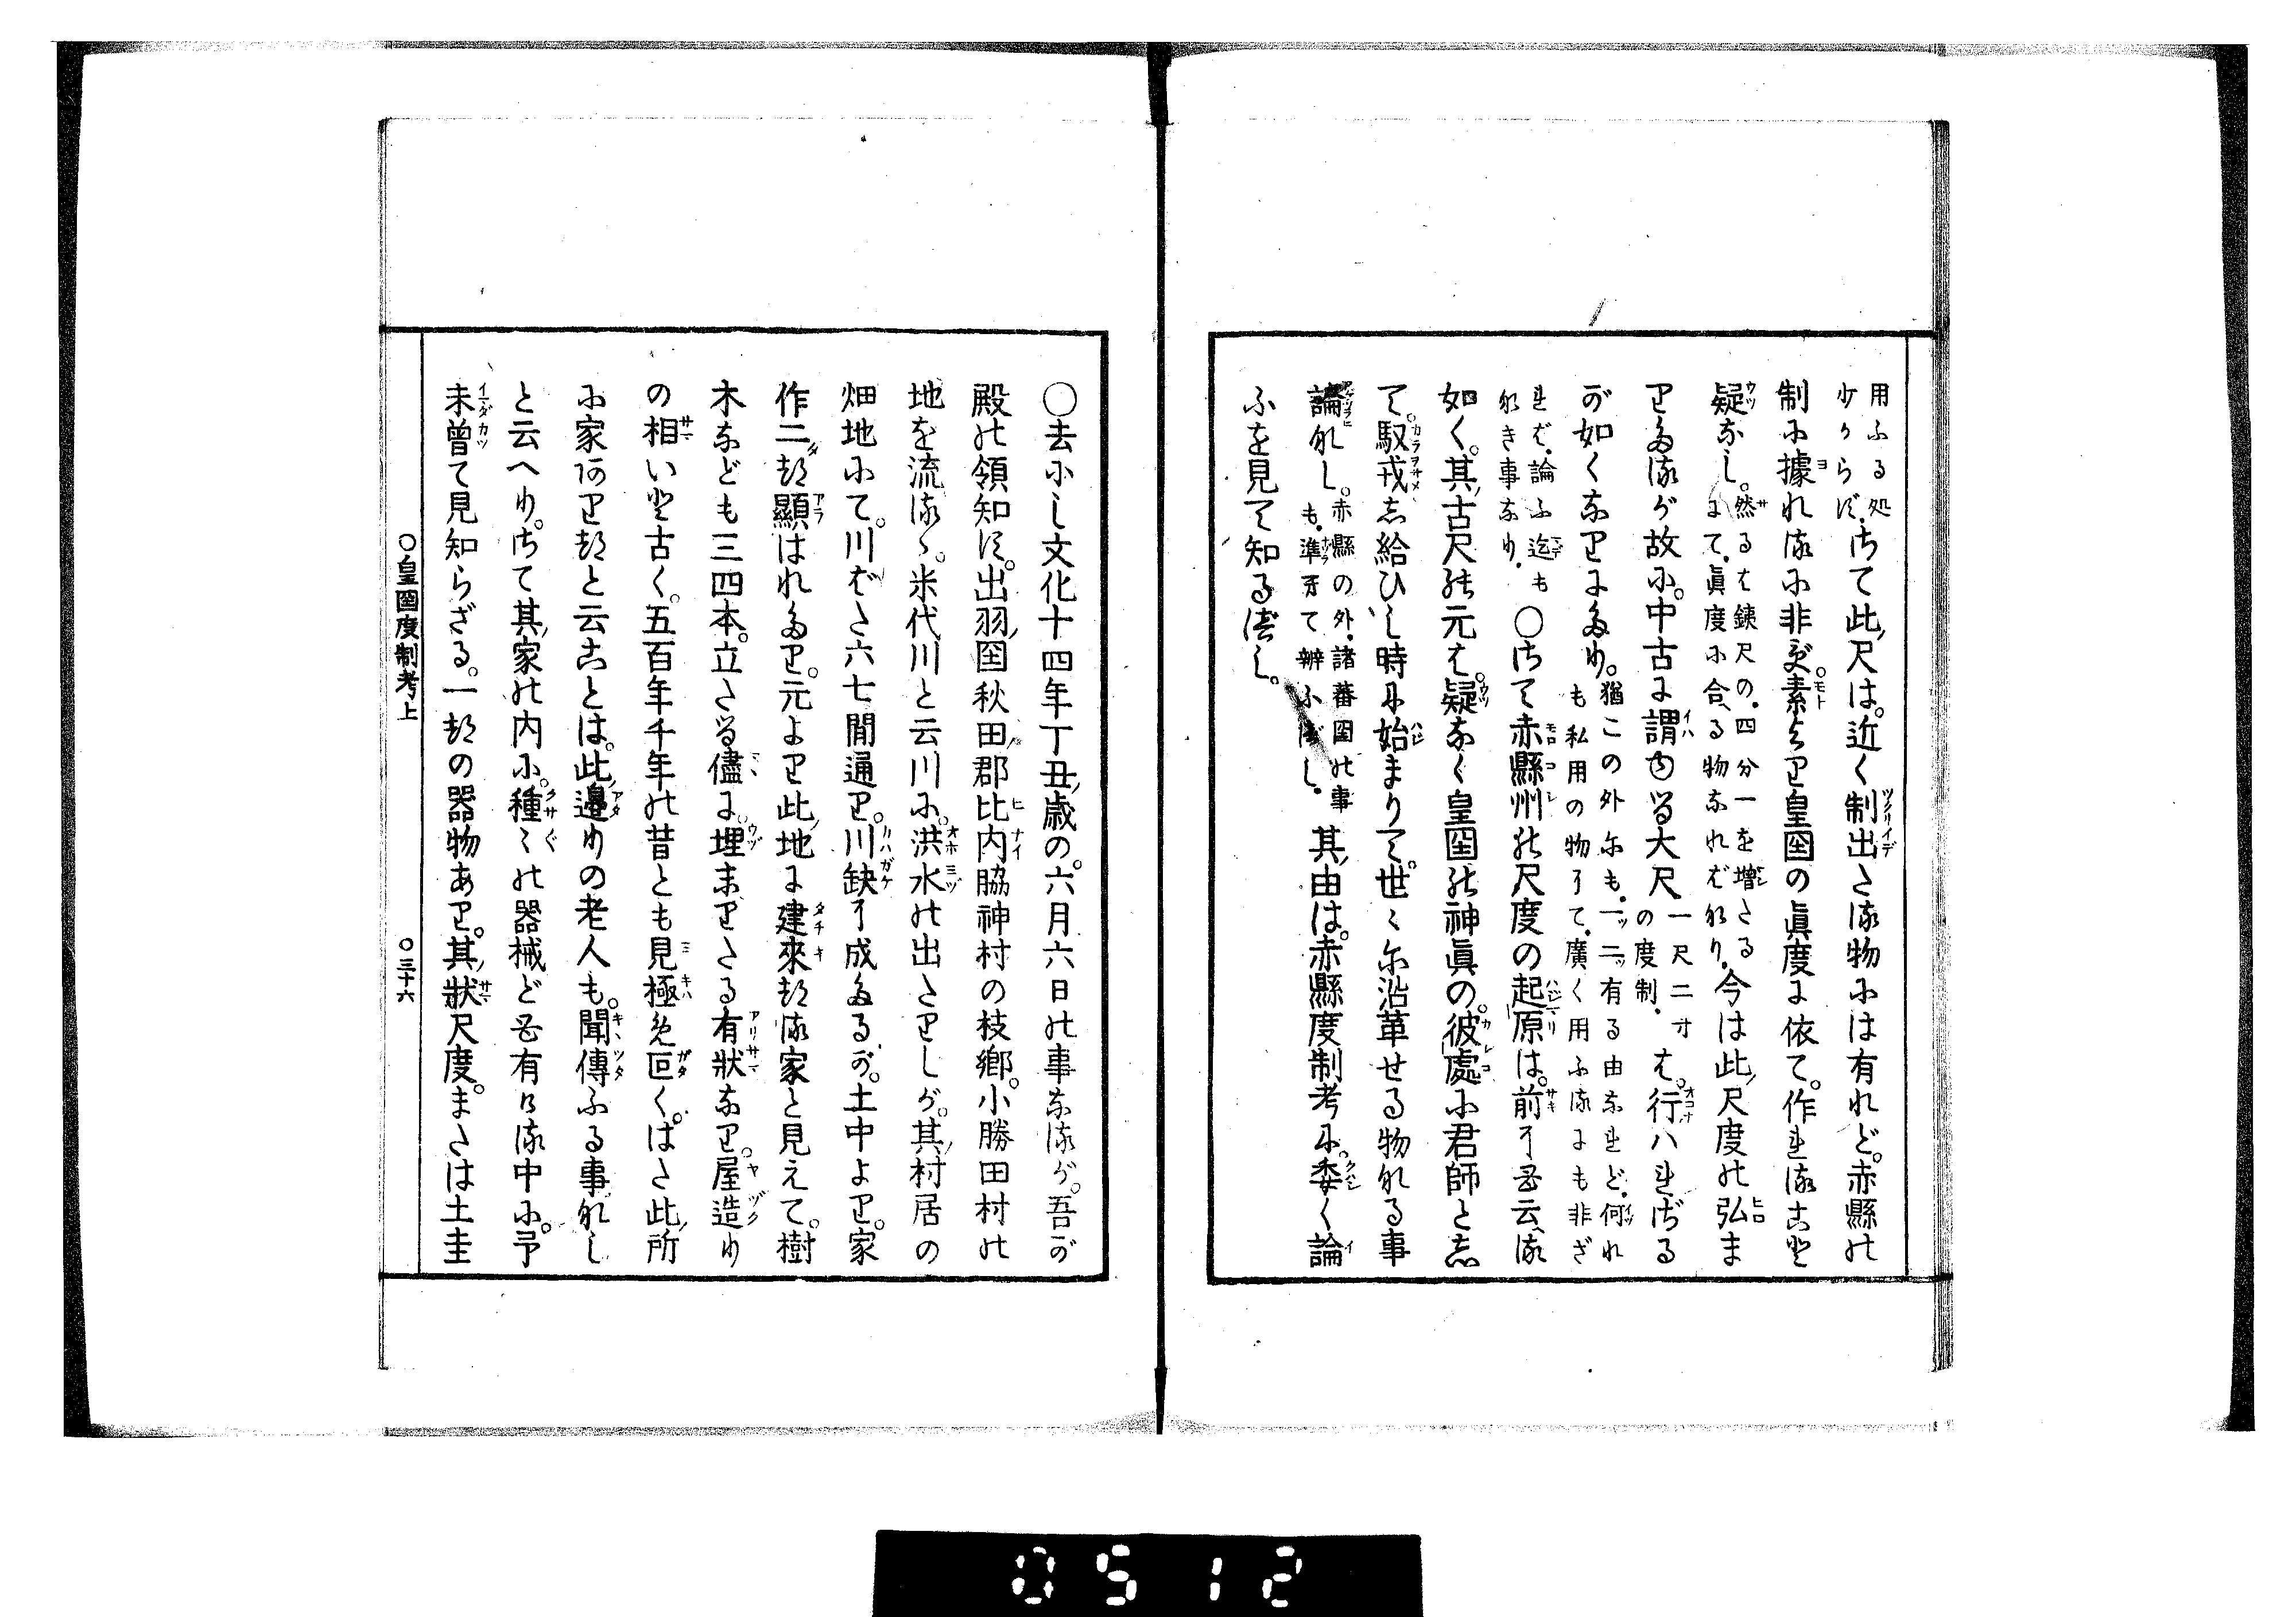 用ふる処
少からず。さて此ノ尺は。近く制出たる物には有れど。赤縣の
制に據れるに非ず。素より皇国の眞度に依て。作れること
疑なし。然るを鐵尺の。四分一を増たる
にて。眞度に合る物なればなり。今は此ノ尺度の弘ま
りたるが故に。中古に謂ゆる大尺一尺二寸
の度制。は。行ハれざる
が如くなりにたり。猶この外にも。一ッ二ッ有る由なれど。何れ
も私用の物にて。廣く用ふるにも非ざ
れば。論ふ迄も
なき事なり。○さて赤縣州の尺度の起原は。前に云る
如く。其ノ古尺の元は。疑なく皇国の神眞の。彼處に君師と爲
て。馭戎し給ひし時に始まりて。世々に沿革せる物なる事
論なし。赤縣の外。諸蕃国の事
も。準へて辨ふべし。其ノ由は。赤縣度制考に。委く論
ふを見て知るべし。
○去にし文化十四年丁丑ノ歳の。六月六日の事なるが。吾が
殿の領知す。出羽ノ国秋田ノ郡比内脇神村の枝郷。小勝田村の
地を流るゝ。米代川と云川に。洪水の出たりしが。其ノ村居の
畑地にて。川ばた六七間通り。川缺に成たるが。土中より。家
作二ツ顯はれたり。元より此ノ地に建來れる家と見えて。樹
木なども三四本。立たる儘に。埋まりたる有状なり。屋造り
の相いと古く。五百年千年の昔とも見極め叵く。はた此ノ所
に家ありきと云ことは。此ノ邊りの老人も。聞傳ふる事なし
と云へり。さて其ノ家の内に。種々の器械ども有ける中に。予
未曾て見知らざる。一つの器物あり。其ノ状尺度。または土圭
○皇国度制考上
○三十六
0512